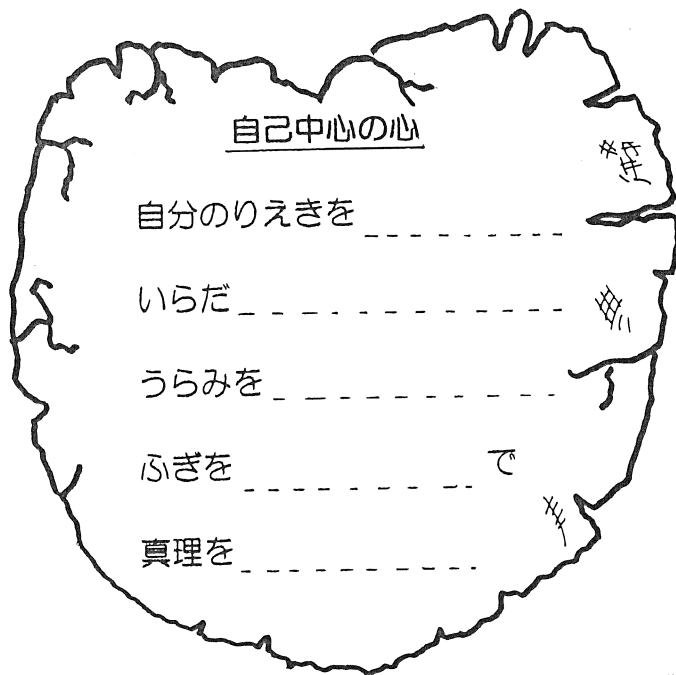 自己中心の心
自分のりえきを
いらだ
うらみを
ふぎを で
真理を